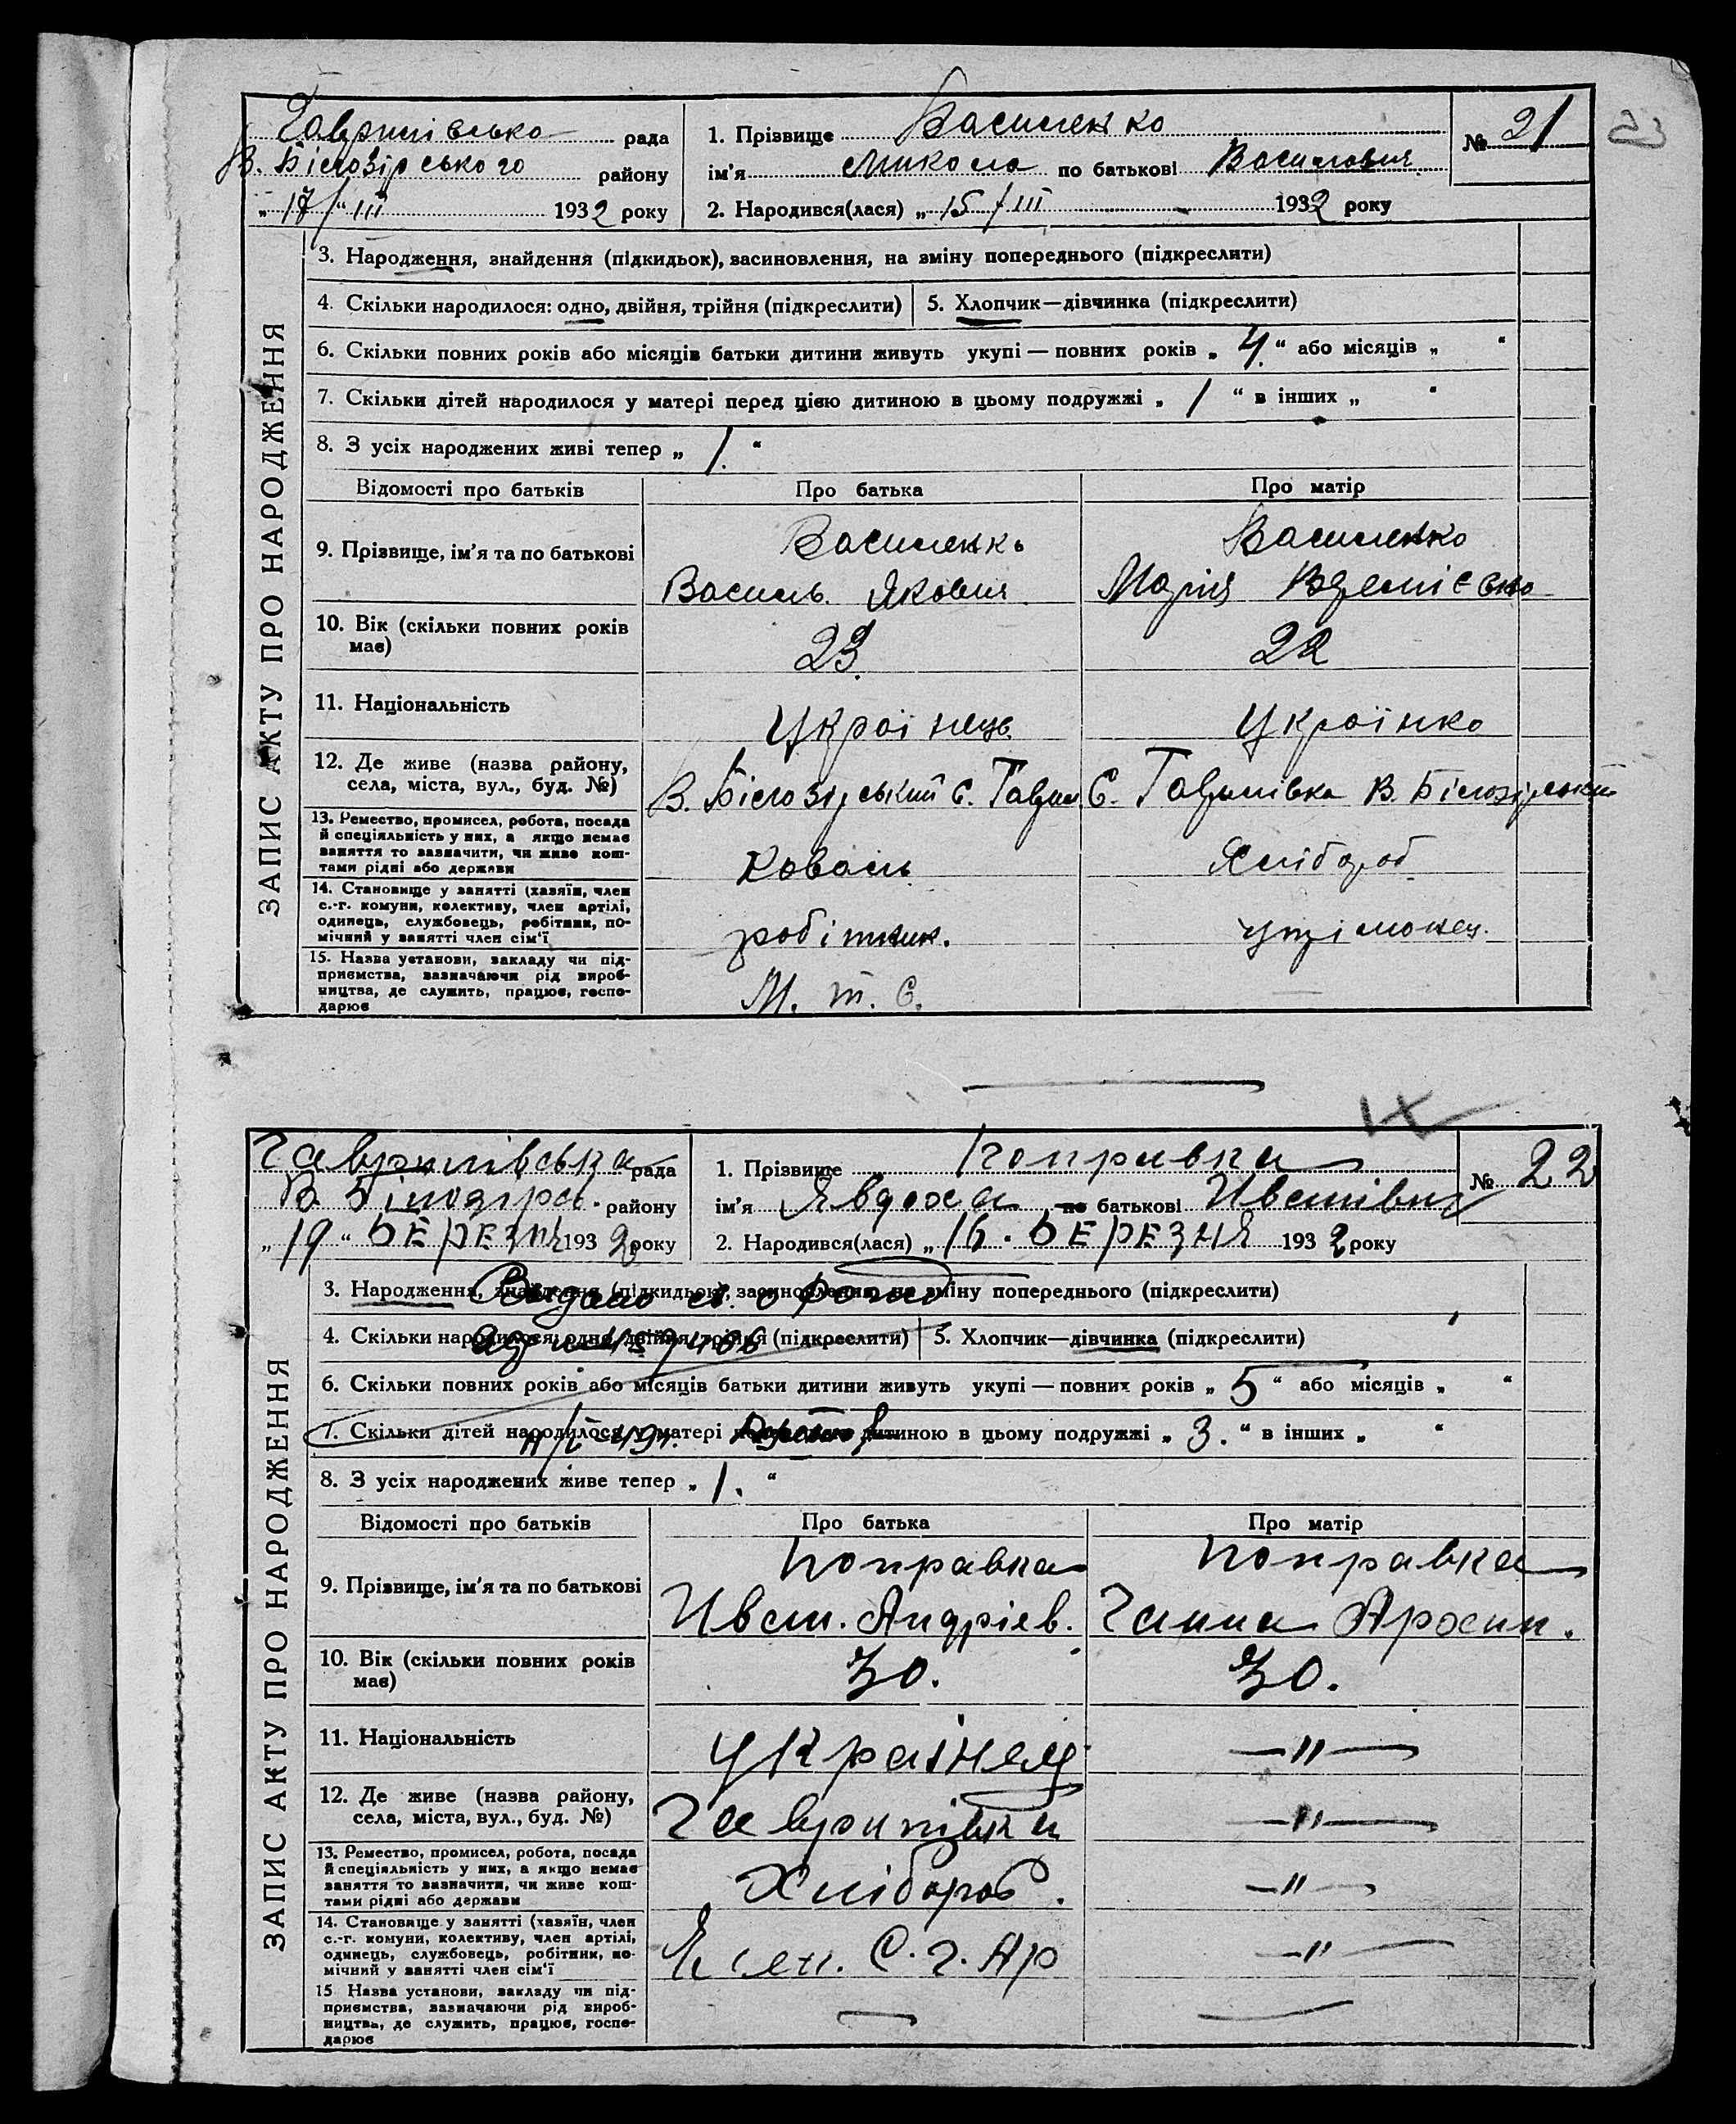 23
Гаврилівсько рада
В. Білозірського району
„17/“ III 1932 року
1. Прізвище Василенко
ім'я Микола по батькові Васильович
2. Народився(лася) „15/III 1932 року
№ 21
ЗАПИС АКТУ ПРО НАРОДЖЕННЯ
3. Народження, знайдення (підкидьок), засиновлення, на зміну попереднього (підкреслити)
4. Скільки народилося: одно, двійня, трійня (підкреслити) 5. Хлопчик—дівчинка (підкреслити)
6. Скільки повних років або місяців батьки дитини живуть укупі — повних років „ 4. “ або місяців „ “
7. Скільки дітей народилося у матері перед цією дитиною в цьому подружжі „ 1 “ в інших „ “
8. З усіх народжених живі тепер „ 1. “
Відомості про батьків Про батька Про матір
9. Прізвище, ім'я та по батькові
Василенко
Василь Якович
Василенко
Марія
10. Вік (скільки повних років
має)
23.
22
11. Національність
Українець
Українко
12. Де живе (назва району,
села, міста, вул., буд. №)
В. Білозірський С. Гаврил.
С. Гаврилівка В. Білозірський
13. Ремество, промисел, робота, посада
й спеціяльність у них, а якщо немає
заняття то зазначити, чи живе кош-
тами рідні або держави
Коваль
Хлібороб
14. Становище у занятті (хазяїн, член
с.-г. комуни, колективу, член артілі,
одинець, службовець, робітник, по-
мічний у занятті член сім'ї
робітник.
утріманец.
15. Назва установи, закладу чи під-
приємства, зазначаючи рід вироб-
ництва, де служить, працює, госпо-
дарює
М. т. С.
Гаврилівська рада
В. Білозірсь. району
„19“ БЕРЕЗНЯ 1932 року
1. Прізвище Поправка
ім'я Явдоха по батькові Ивагнівна
2. Народився(лася) „16. БЕРЕЗНЯ 1932 року
№ 22
ЗАПИС АКТУ ПРО НАРОДЖЕННЯ
3. Народження, знайдення (підкидьок), засиновлення, на зміну попереднього (підкреслити)
Видано св. о рожд
4. Скільки народилося: одно, двійня, трійня (підкреслити) 5. Хлопчик—дівчинка (підкреслити)
6. Скільки повних років або місяців батьки дитини живуть укупі — повних років „ 5 “ або місяців „ “
7. Скільки дітей народилося у матері перед цією дитиною в цьому подружжі „ 3. “ в інших „ “
8. З усіх народжених живе тепер „ 1. “
Відомості про батьків Про батька Про матір
9. Прізвище, ім'я та по батькові
Поправка
Андріев.
Поправка
Ганна
10. Вік (скільки повних років
має)
30.
30.
11. Національність
українец
—"—
12. Де живе (назва району,
села, міста, вул., буд. №)
Гаврилівка
—"—
13. Ремество, промисел, робота, посада
й спеціяльність у них, а якщо немає
заняття то зазначити, чи живе кош-
тами рідні або держави
Хлібороб.
—"—
14. Становище у занятті (хазяїн, член
с.-г. комуни, колективу, член артілі,
одинець, службовець, робітник, по-
мічний у занятті член сім'ї
Член. С. г. Ар
—"—
15 Назва установи, закладу чи під-
приємства, зазначаючи рід вироб-
ництва, де служить, працює, госпо-
дарює